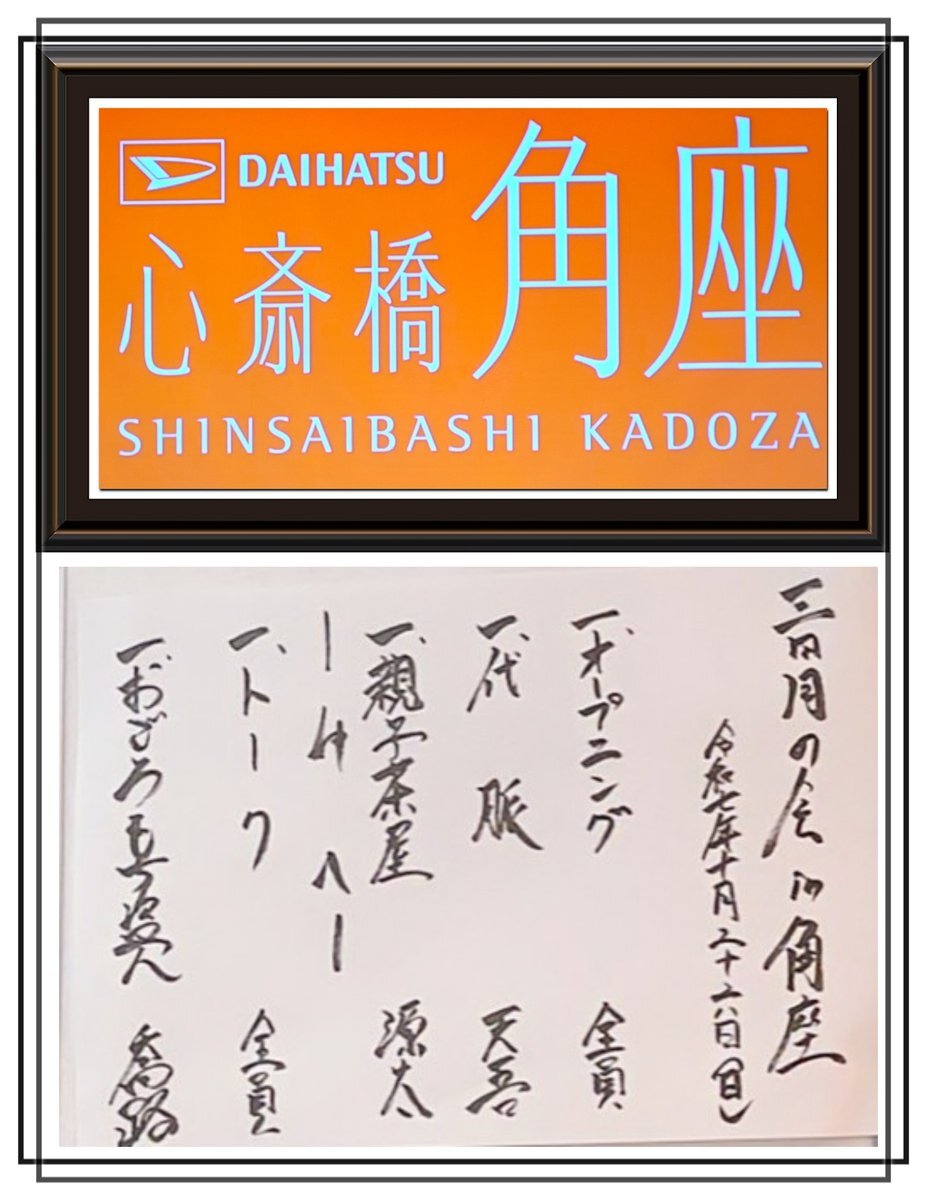 DAIHATSU
心斎橋 角座
SHINSAIBASHI KADOZA
三日月の会in角座
令和七年十月二十六日(日)
一、オープニング 全員
一、代脈 天吾
一、親子茶屋 源太
一仲入一
一、トーク 全員
一、おごろもち盗人 喬路